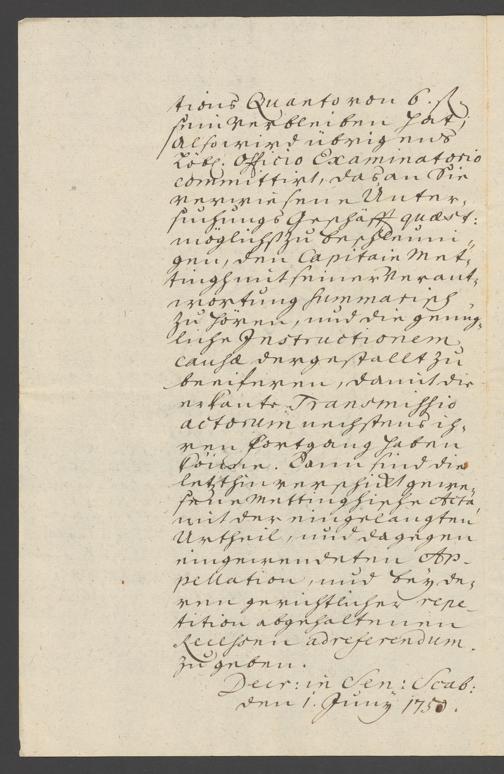 tions Quanto von 6. R
sein verbleiben hat,
Also wird übrigens
Löbl. Officio Examinatorio
committirt, das an Sie
verwiesene Unter,
suchungs Geschäfft quæst:
möglichst zu beschleuni,,
gen, den Capitain Met,
tingh mit seiner Verant,
wortung summarisch
zu hören, und die genüg,
liche Instructionem
causæ dergestallt zu
beeiferen, damit die
erkante Transmissio
actorum nechstens ih,
ren fortgang haben
könne. Dann sind die
letzthin verschickt gewe,
sene Mettinghische Acta,
mit der eingelangten
Urtheil, und dagegen
eingewendeten Ap,
pellation, und bey de,
ren gerichtlicher repe,
tition abgehaltenen
Recessen ad referendum
zu geben.
Decr: in Sen: Scab:
den 1. Juny 1750.